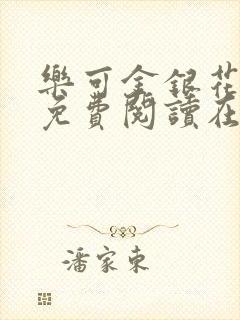 樂可金銀花
免費閱讀在
潘家東